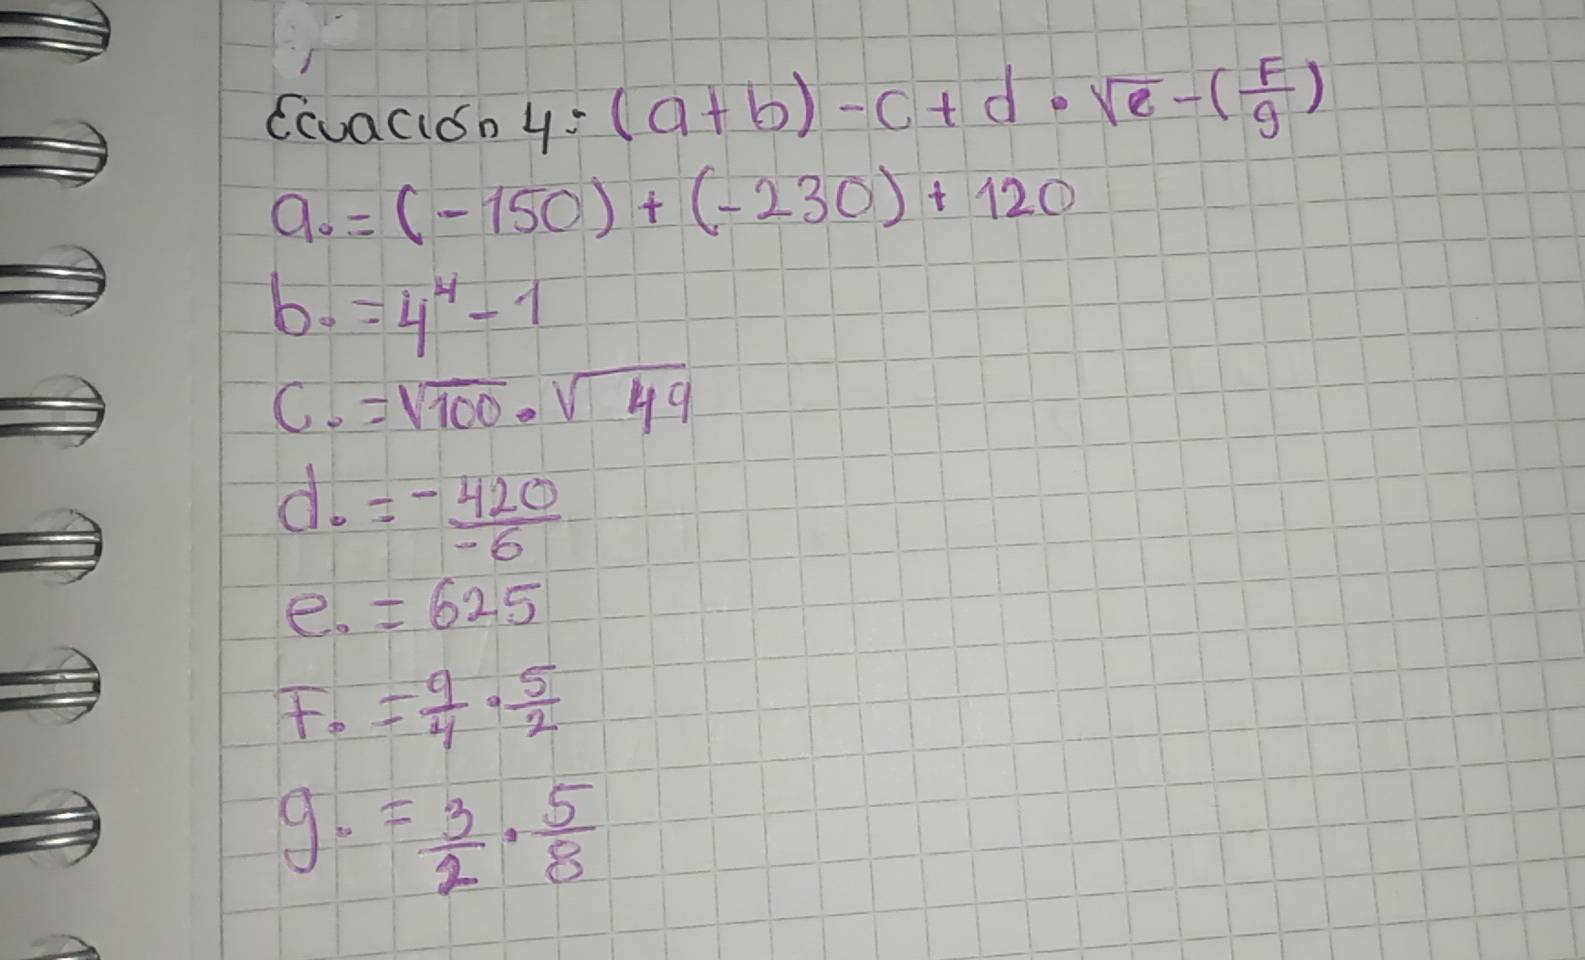 Ecuación 4: (a+b) - c + d • √e - (F/g)
a. = (-150) + (-230) + 120
b. = 4⁴ - 1
c. = √100 • √49
d. = -420/-6
e. = 625
F. = 9/4 • 5/2
g. = 3/2 • 5/8